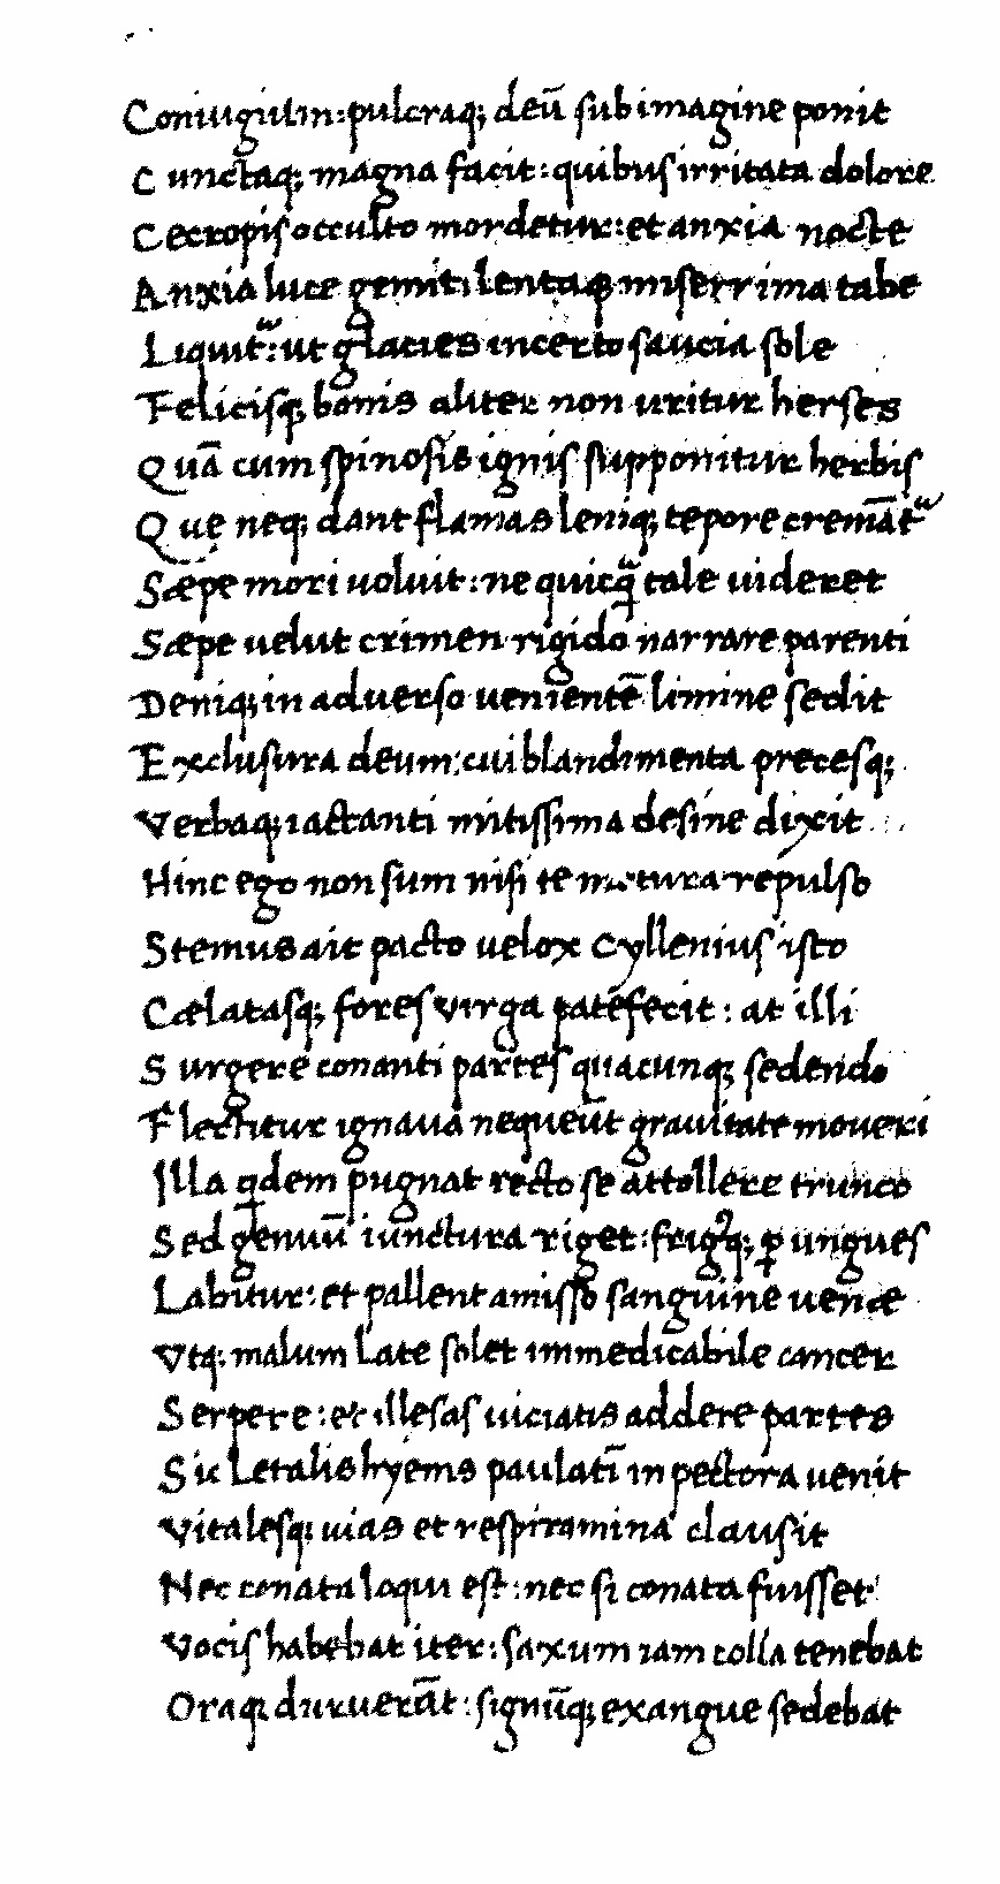 Coniugium: pulcraq; deū sub imagine ponit
Cunctaq; magna facit: quibus irritata dolore
Cecropis occulto mordetur: et anxia nocte
Anxia luce gemit: lentaq; miserrima tabe
Liquit᷑: ut glacies incerto saucia sole
Felicisq; bonis aliter non uritur herses
Quā cum spinosis ignis supponitur herbis
Quę neq; dant flamas leniq; tepore cremāt᷑
Sæpe mori uoluit: ne quicqͣ tale uideret
Sæpe uelut crimen rigido narrare parenti
Deniq; in aduerso uenientē limine sedit
Exclusura deum: cui blandimenta precesq;
Verbaq; iactanti mitissima desine dixit
Hinc ego non sum nisi te motura repulso
Stemus ait pacto uelox Cyllenius isto
Cælatasq; fores virga patefecit: at illi
Surgere conanti partes quacunq; sedendo
Flectitur ignaua nequeūt grauitate moueri
Illa qͥdem pugnat recto se attollere trunco
Sed genuū iunctura riget: frigꝰq; ꝑ ungues
Labitur: et pallent amisso sanguine uenæ
Vtq; malum late solet immedicabile cancer
Serpere: et illesas uiciatis addere partes
Sic Letalis hyems paulatī in pectora uenit
Vitalesq; uias et respiramina clausit
Nec conata loqui est: nec si conata fuisset
Vocis habebat iter: saxum iam colla tenebat
Oraq; duruerāt: signūq; exangue sedebat